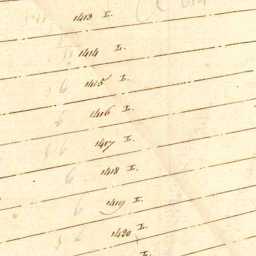 1413 I.
1414 I.
1415 I.
1416 I.
1417 I.
1418 I.
1419 I.
1420 I.
I.